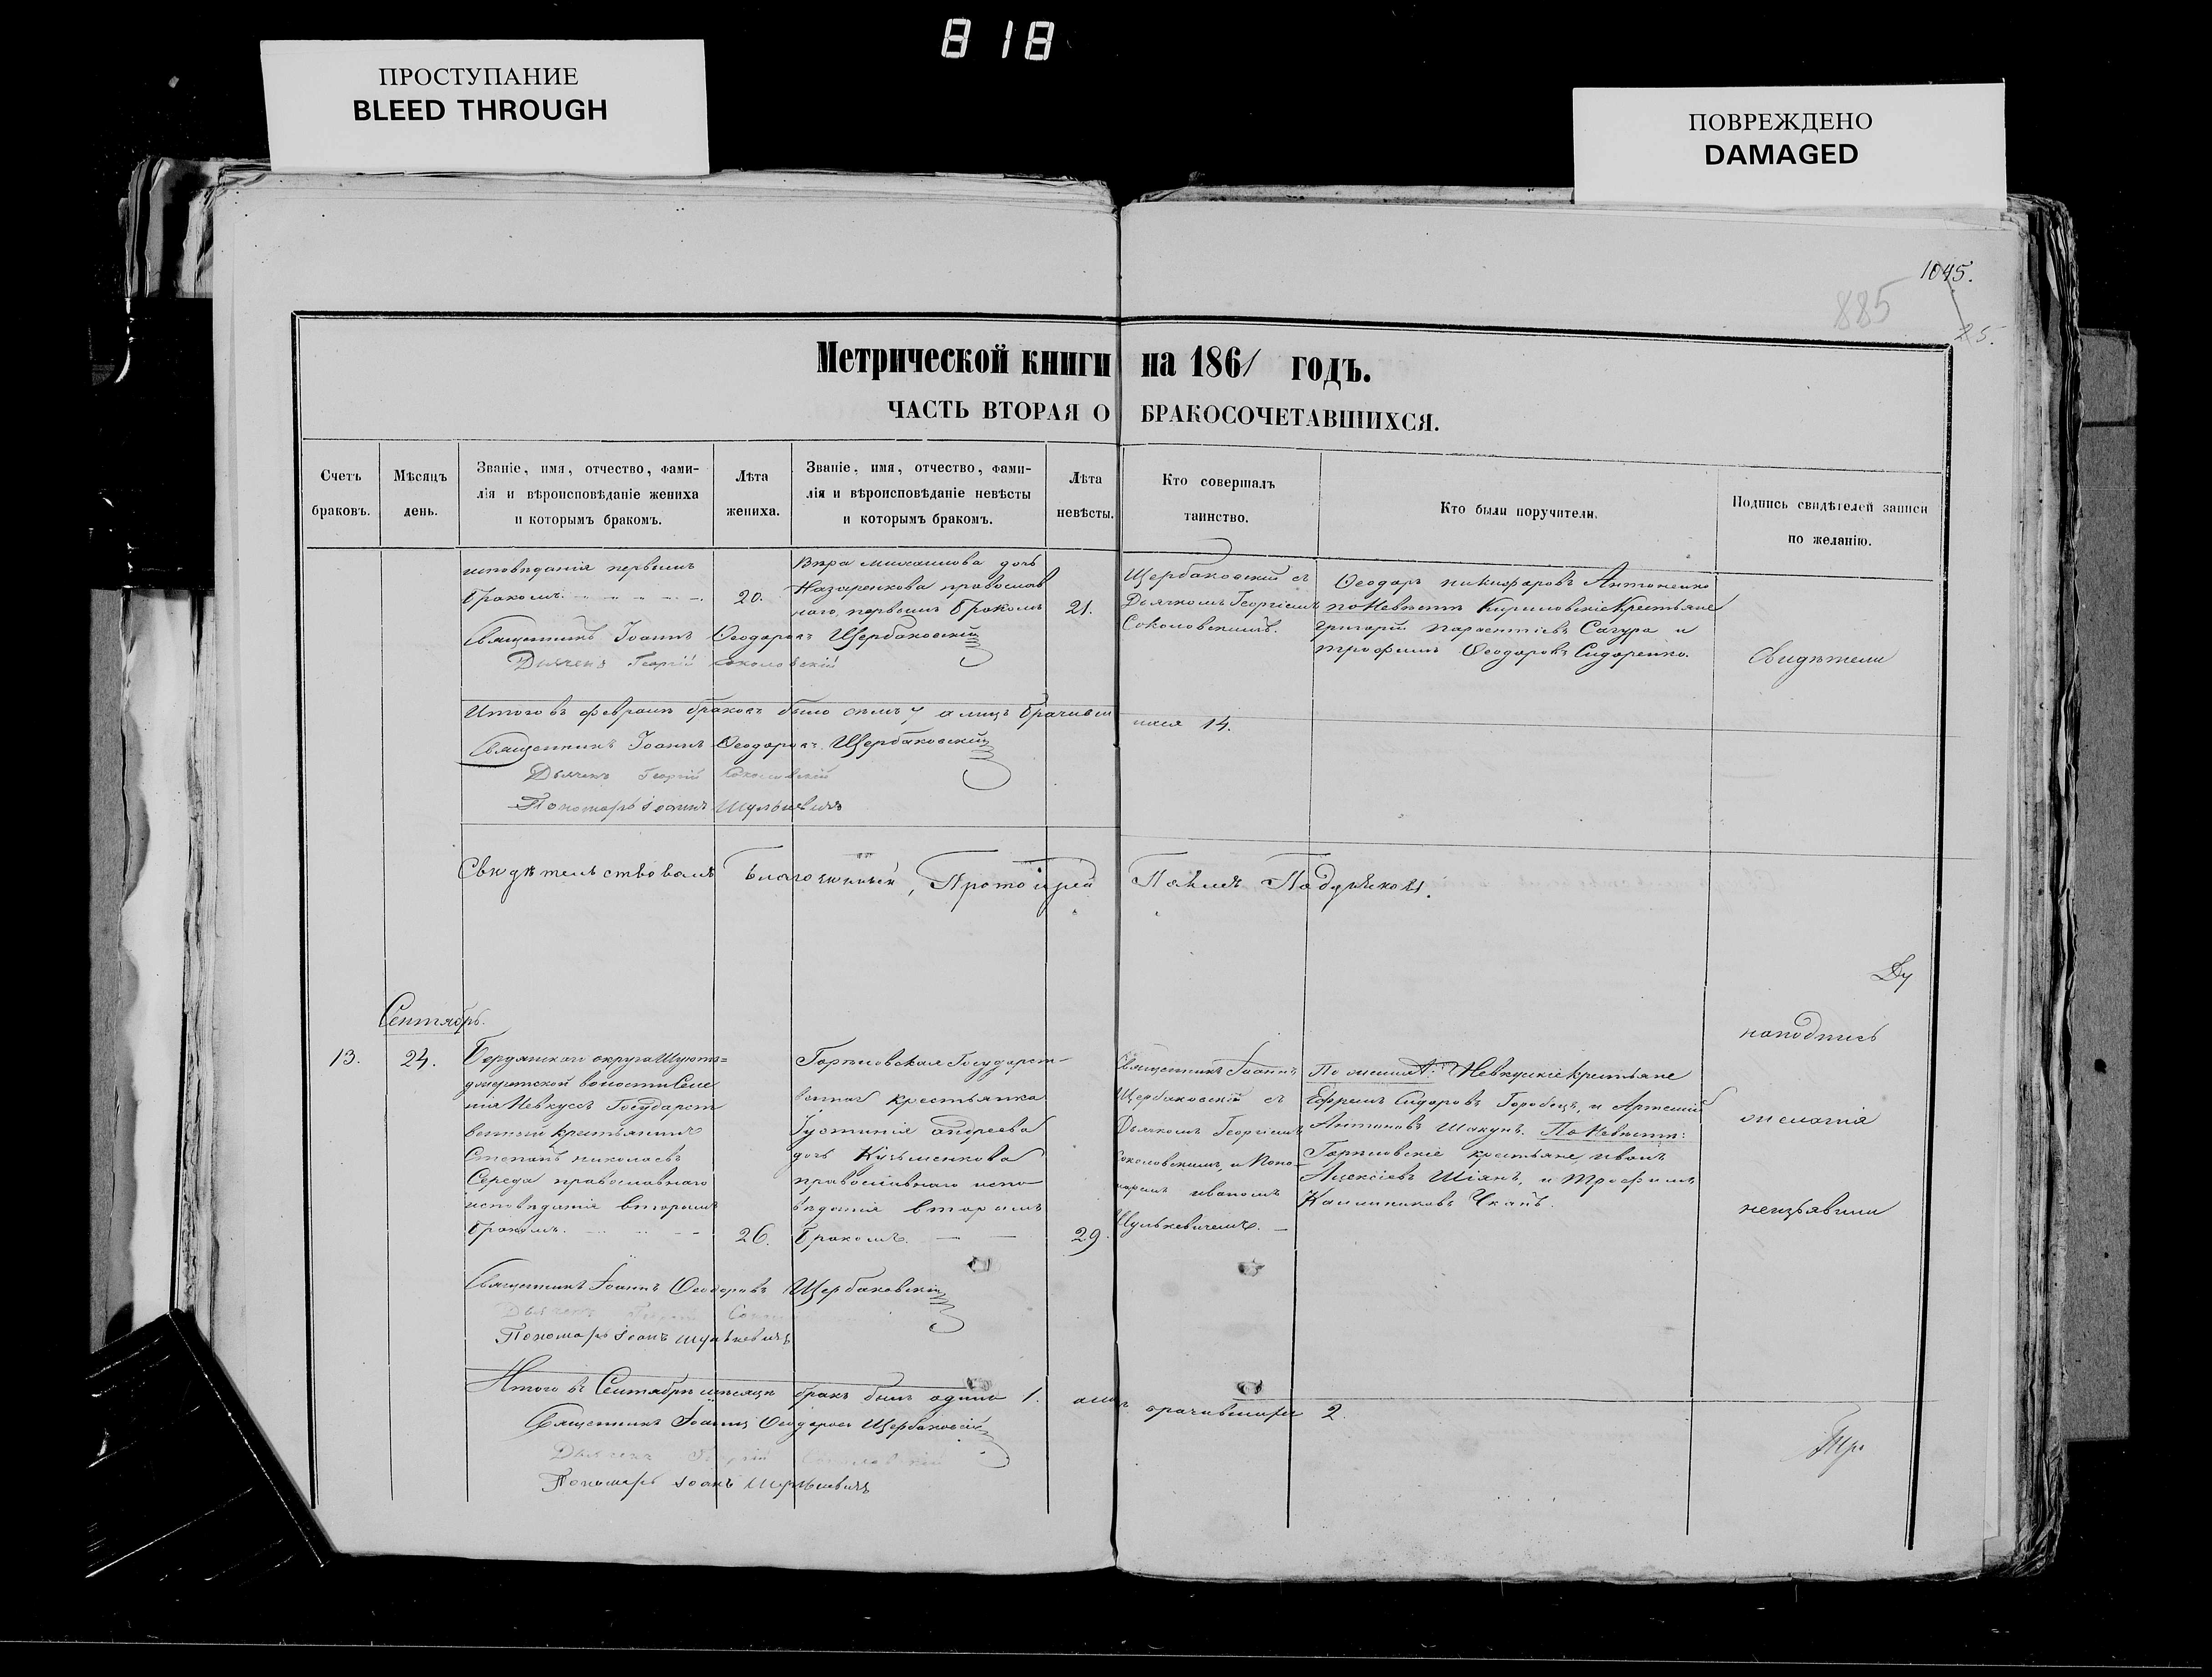 818
ПРОСТУПАНИЕ
BLEED THROUGH
ПОВРЕЖДЕНО
DAMAGED
1045.
885
25.
Метрической книги на 1861 годъ.
ЧАСТЬ ВТОРАЯ О БРАКОСОЧЕТАВШИХСЯ.
Счетъ
браковъ.
Мѣсяцъ
день.
Званіе, имя, отчество, фами-
лія и вѣроисповѣданіе жениха
и которымъ бракомъ.
Лѣта
жениха.
Званіе, имя, отчество, фами-
лія и вѣроисповѣданіе невѣсты
и которымъ бракомъ.
Лѣта
невѣсты.
Кто совершалъ
таинство.
Кто были поручители.
Подпись свидѣтелей записи
по желанію.
исповѣданія первымъ
бракомъ.
20.
Вѣра Михаилова дочь
Назаренкова православ
наго, первымъ бракомъ
21.
Щербаковскій съ
Дьячкомъ Георгіемъ
Соколовскимъ.
Ѳеодоръ Никифоровъ Антоненко
по Невѣстѣ Кириловскіе Крестьяне
Григорій Сагура и
Трофимъ Ѳеодоровъ Сидоренко.
Свидѣтели
Священникъ Іоаннъ Ѳеодоровъ Щербаковскій
Дьячекъ Георгій Соколовскій
Итого въ Февралѣ браковъ было семь 7, а лицъ брачивши
хся 14.
Священникъ Іоаннъ Ѳеодоровъ Щербаковскій
Дьячекъ Георгій Соколовскій
Пономарь Іоаннъ Шулькевичъ
Свидѣтельствовалъ Благочинный, Протоіерей Павелъ
Сентябрь.
13.
24.
Бердянскаго округа
волости Селе
нія Невкусъ Государст
венный крестьянинъ
Степанъ Николаевъ
Середа православнаго
исповѣданія вторымъ
бракомъ.
26.
Государст-
венная крестьянка
Іустинія Андреева
дочь Кузьменкова
православнаго испо
вѣданія вторымъ
бракомъ.
29.
Священникъ Іоаннъ
Щербаковскій съ
Дьячкомъ Георгіемъ
Соколовскимъ, и Поно-
маремъ Иваномъ
Шулькевичемъ.
По женихѣ: Невкускіе крестьяне
Ефремъ Сидоровъ Горобецъ, и Артемій
Антоновъ Шакунъ. По Невѣстѣ:
крестьяне, Иванъ
Алексіевъ Шіянъ, и Трофимъ
Калинниковъ Чкань.
Ду
наподпись
желанія
неизъявили
Священникъ Іоаннъ Ѳеодоровъ Щербаковскій
Дьячекъ Георгій
Пономарь Іоанъ Шулькевичъ
Итого въ Сентябрѣ мѣсяцѣ бракъ былъ одинъ 1. а лицъ брачившихся 2.
Священникъ Іоаннъ Ѳеодоровъ Щербаковскій
Дьячекъ Георгій Соколовскій
Пономарь Іоанъ Шулькевичъ